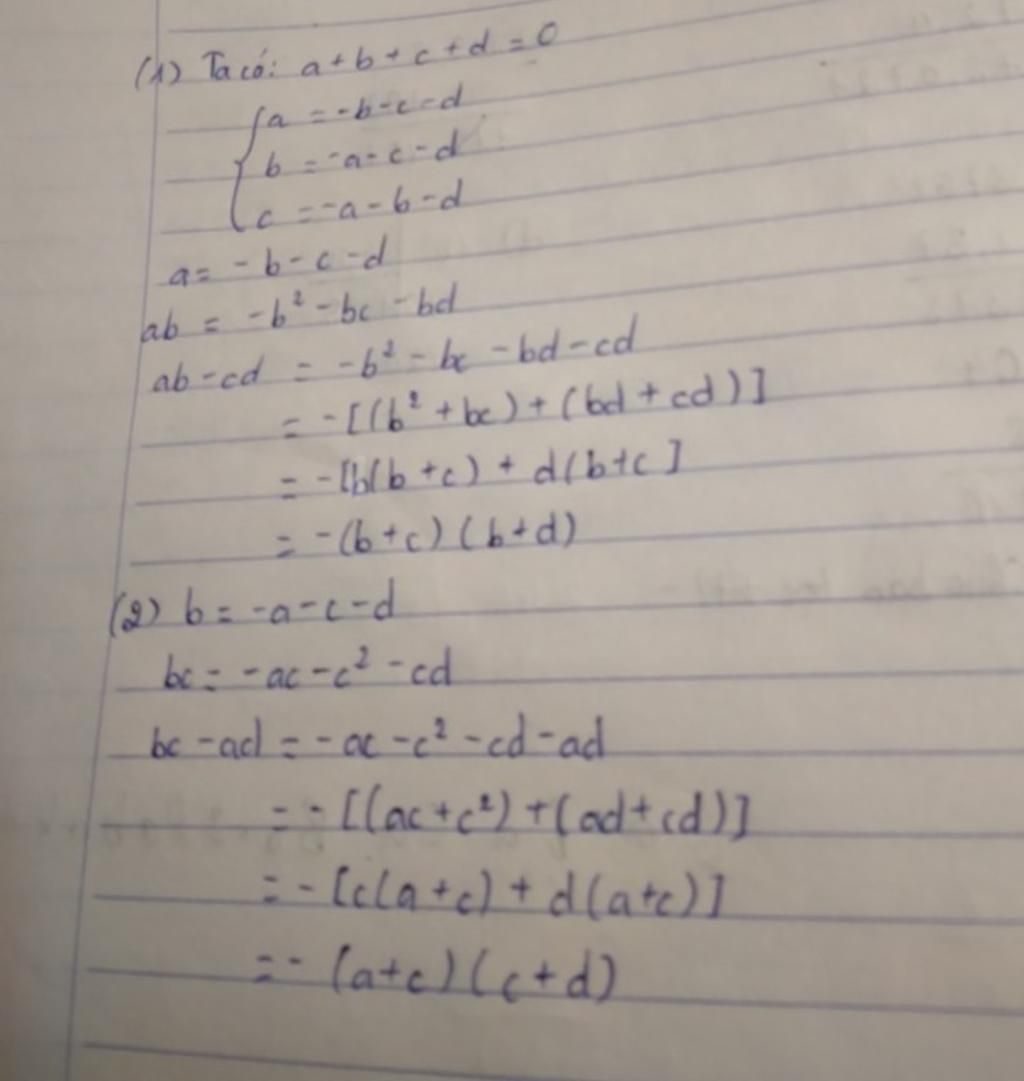 (1) Ta có: a+b+c+d=0
{a = -b-c-d
b = -a-c-d
c = -a-b-d
a = -b-c-d
ab = -b² - bc - bd
ab-cd = -b² - bc - bd - cd
= -[(b² + bc) + (bd + cd)]
= -[b(b+c) + d(b+c]
= -(b+c)(b+d)
(2) b = -a-c-d
bc = -ac-c²-cd
bc-ad = -ac-c²-cd-ad
= -[(ac+c²)+(ad+cd)]
= -[c(a+c) + d(a+c)]
= -(a+c)(c+d)